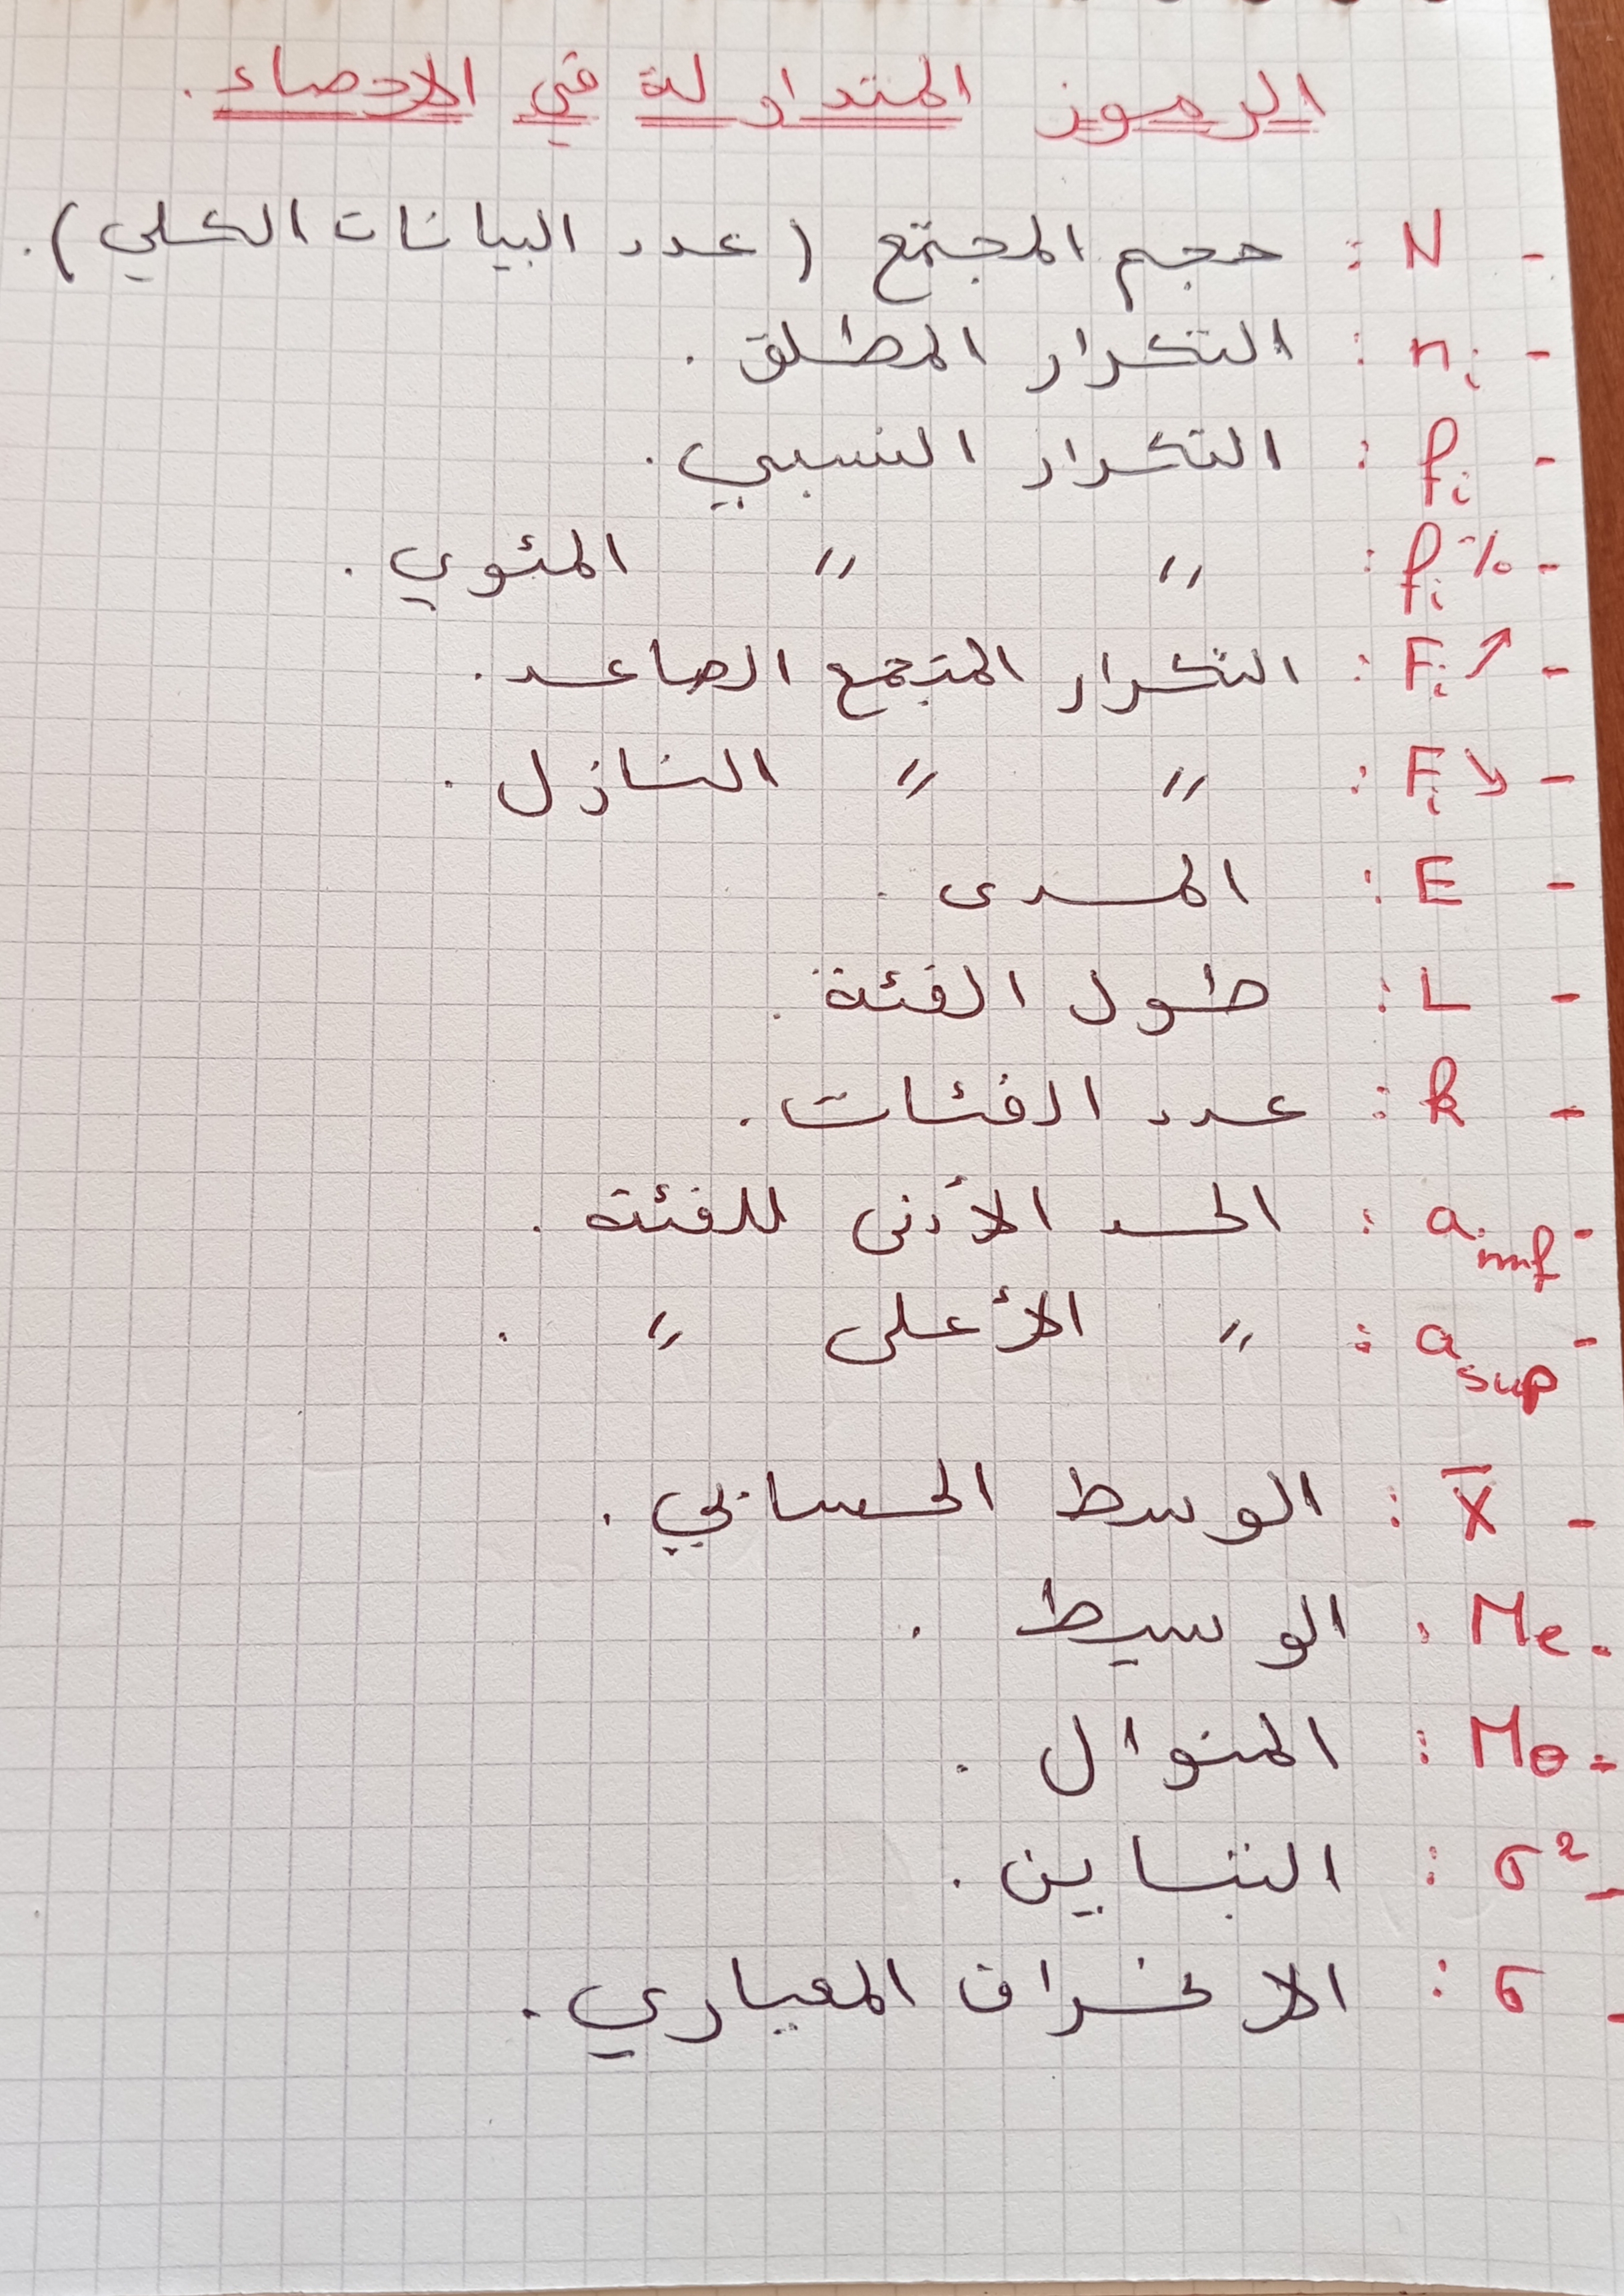 الرموز المتداولة في الإحصاء.
- N : حجم المجتمع (عدد البيانات الكلي).
- ni : التكرار المطلق.
- fi : التكرار النسبي.
- fi% : " " المئوي.
- Fi↗ : التكرار المتجمع الصاعد.
- Fi↘ : " " النازل.
- E : المدى.
- L : طول الفئة.
- k : عدد الفئات.
- a inf : الحد الأدنى للفئة.
- a sup : " الأعلى ".
- X̄ : الوسط الحسابي.
- Me : الوسيط.
- Mo : المنوال.
- σ² : التباين.
- σ : الانحراف المعياري.